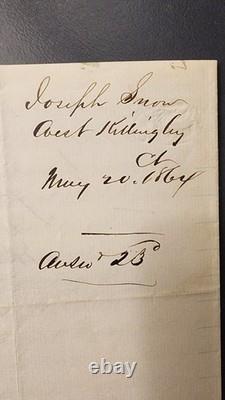 Joseph Snow
West Killingly
Ct
May 20. 1864
Answd 23d
ebay